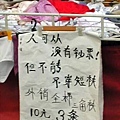 人可以
没有钞票!
但不能
不穿短裤
外销全棉
三角裤
10元3条